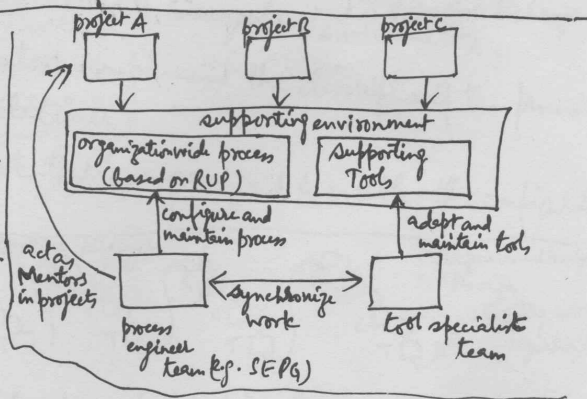 project A
project B
project C
supporting environment
organizationwide process
(based on RUP)
supporting
Tools
configure and
maintain process
adept and
maintain tools
act as
Mentors
in projects
synchronize
work
process
engineer
team (e.g. SEPG)
tool specialist
team